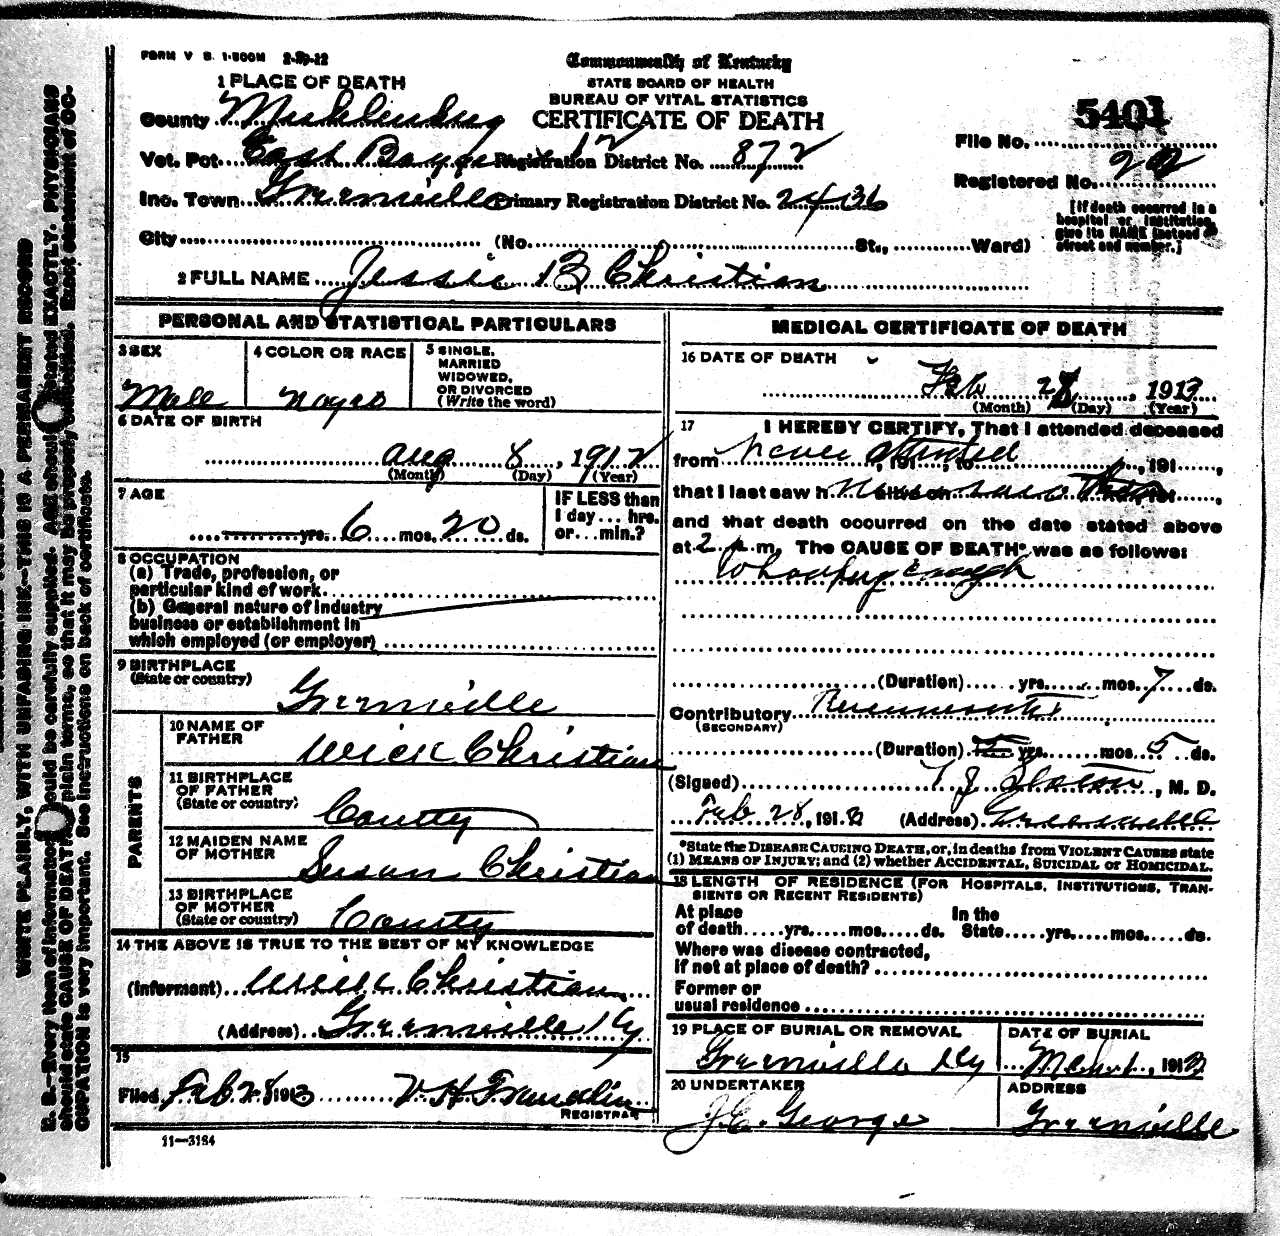 FORM V S. 1-500M 2-29-12
Commonwealth of Kentucky
STATE BOARD OF HEALTH
BUREAU OF VITAL STATISTICS
CERTIFICATE OF DEATH
1 PLACE OF DEATH
County Muhlenburg
Vot. Pct. East Registration District No. 872
Inc. Town Greenville Primary Registration District No. 2436
City (No. St., Ward)
File No. 5401
Registered No.
[If death occurred in a
hospital or institution,
give its NAME instead of
street and number.]
2 FULL NAME Jessie B Christian
PERSONAL AND STATISTICAL PARTICULARS
3 SEX
Male
4 COLOR OR RACE
Negro
5 SINGLE,
MARRIED
WIDOWED,
OR DIVORCED
(Write the word)
6 DATE OF BIRTH
Aug 8, 1912
(Month) (Day) (Year)
7 AGE
yrs. 6 mos. 20 ds.
IF LESS than
1 day ... hrs.
or ... min.?
8 OCCUPATION
(a) Trade, profession, or
particular kind of work
(b) General nature of industry
business or establishment in
which employed (or employer)
9 BIRTHPLACE
(State or country)
Greenville
PARENTS
10 NAME OF
FATHER
Wick Christian
11 BIRTHPLACE
OF FATHER
(State or country)
County
12 MAIDEN NAME
OF MOTHER
Susan Christian
13 BIRTHPLACE
OF MOTHER
(State or country)
County
14 THE ABOVE IS TRUE TO THE BEST OF MY KNOWLEDGE
(Informant) Wick Christian
(Address) Greenville Ky
15
Filed Feb 28 1913
REGISTRAR
11—3184
MEDICAL CERTIFICATE OF DEATH
16 DATE OF DEATH
Feb 28, 1913
(Month) (Day) (Year)
17 I HEREBY CERTIFY, That I attended deceased
from never attended, 191 , to , 191 ,
that I last saw h alive on , 191 ,
and that death occurred on the date stated above
at 2 m. The CAUSE OF DEATH* was as follows:
Whooping Cough
(Duration) yrs. mos. 7 ds.
Contributory
(SECONDARY)
(Duration) yrs. mos. 5 ds.
(Signed) T J Slaton, M. D.
Feb 28, 1913 (Address) Greenville
*State the DISEASE CAUSING DEATH, or, in deaths from VIOLENT CAUSES state
(1) MEANS OF INJURY; and (2) whether ACCIDENTAL, SUICIDAL or HOMICIDAL.
18 LENGTH OF RESIDENCE (FOR HOSPITALS, INSTITUTIONS, TRAN-
SIENTS OR RECENT RESIDENTS)
At place In the
of death yrs. mos. ds. State yrs. mos. ds.
Where was disease contracted,
if not at place of death?
Former or
usual residence
19 PLACE OF BURIAL OR REMOVAL
Greenville Ky
DATE OF BURIAL
Mch 1, 1913
20 UNDERTAKER
J.E. George
ADDRESS
Greenville
WRITE PLAINLY, WITH UNFADING INK—THIS IS A PERMANENT RECORD
N. B.—Every item of information should be carefully supplied. AGE should be stated EXACTLY. PHYSICIANS
should state CAUSE OF DEATH in plain terms, so that it may be properly classified. Exact statement of OC-
CUPATION is very important. See instructions on back of certificate.